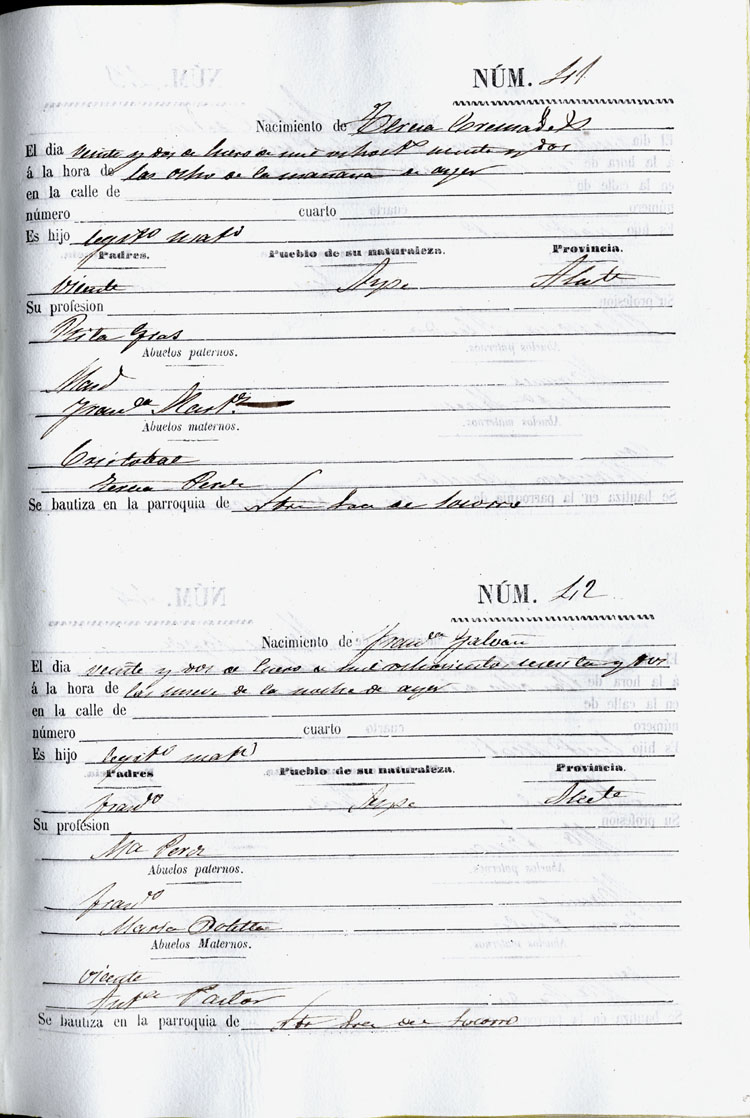 NÚM. 41
Nacimiento de Teresa Cremades
El dia veinte y dos de Enero de mil ochost.s y dos
á la hora de las ocho de la mañana de ayer
en la calle de
número cuarto
Es hijo legit.o mat.l
Padres. Pueblo de su naturaleza. Provincia.
Vicente Aspe Alicte
Su profesion
Rita Gras
Abuelos paternos.
Fran.ca Mart.z
Abuelos maternos.
Cristobal
Teresa Perez
Se bautiza en la parroquia de Ntra Sra de Socorro
NÚM. 42
Nacimiento de Fran.co Galvañ
El dia veinte y dos de Enero de mil ochocientos y dos
á la hora de las nueve de la noche de ayer
en la calle de
número cuarto
Es hijo legit.o mat.l
Padres Pueblo de su naturaleza. Provincia.
Fran.co Aspe Alicte
Su profesion
M.a Perez
Abuelos paternos.
Fran.co
Maria Botella
Abuelos Maternos.
Vicente
Ant.a Pastor
Se bautiza en la parroquia de Ntra Sra del Socorro